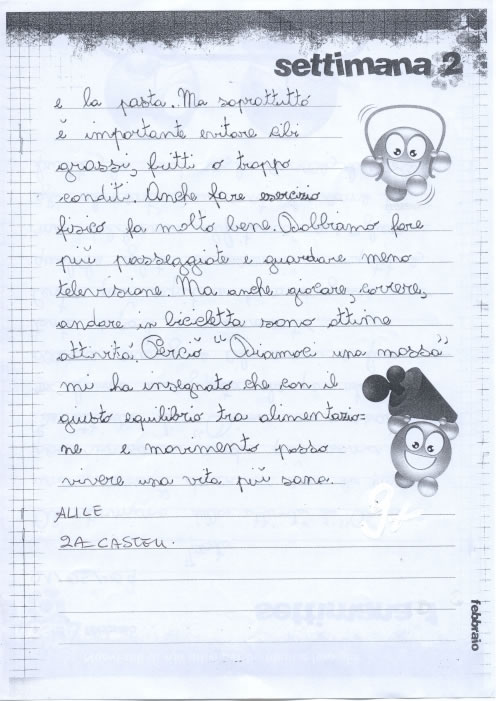 settimana 2
e la pasta. Ma soprattutto
è importante evitare cibi
grassi, fritti o troppo
conditi. Anche fare esercizio
fisico fa molto bene. Dobbiamo fare
più passeggiate e guardare meno
televisione. Ma anche giocare, correre,
andare in bicicletta sono ottime
attività. Perciò "Diamoci una mossa"
mi ha insegnato che con il
giusto equilibrio tra alimentazio=
ne e movimento posso
vivere una vita più sana.
ALICE
2A CASTELL.
febbraio